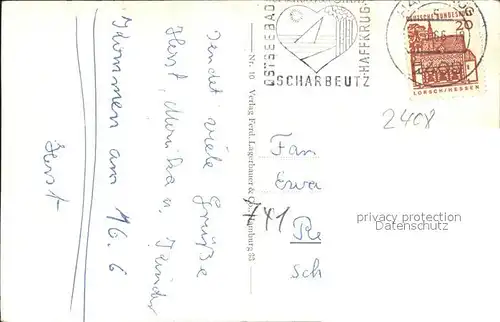 sendet viele Grüße
Horst, Monika u. Kinder
Kommen am 16.6
Horst
Nr. 16 Verlag Ferd. Lagerbauer & Co., Hamburg 63
OSTSEEBAD
SCHARBEUTZ
HAFFKRUG
HAFFKRUG
DEUTSCHE BUNDESPOST
20
LORSCH/HESSEN
2408
Fam
Erwa
741 Re
sch
privacy protection
Datenschutz